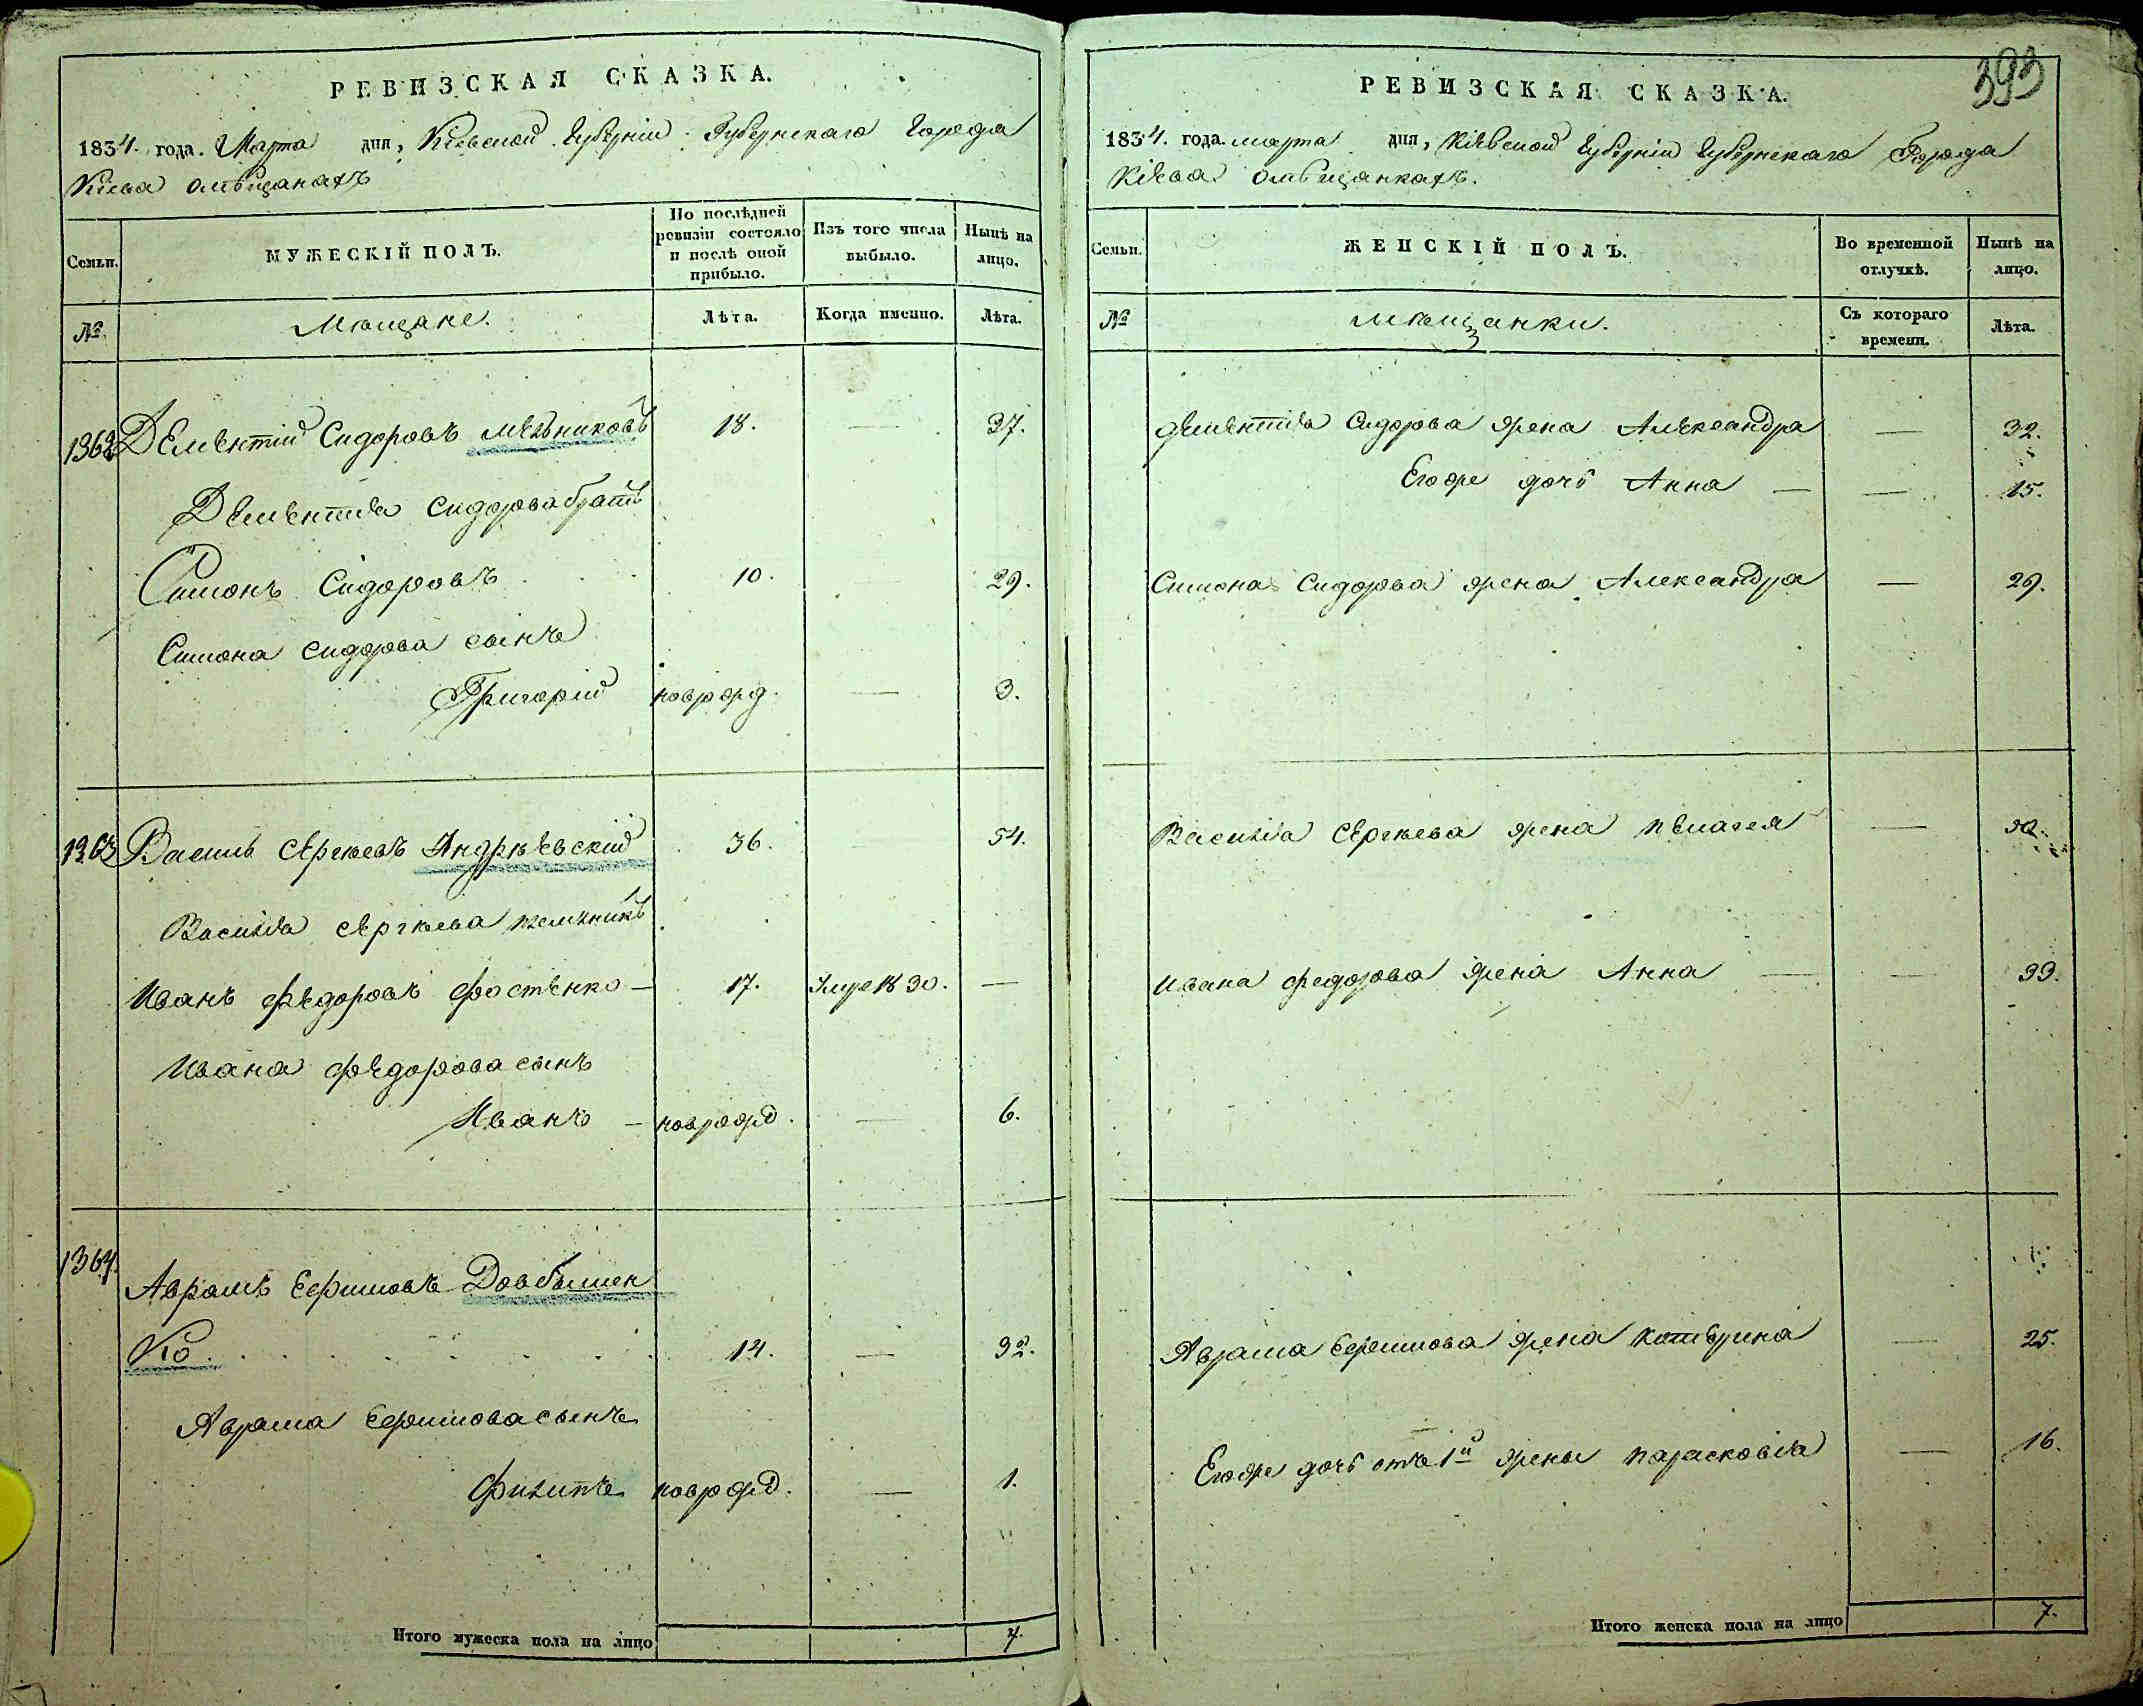 РЕВИЗСКАЯ СКАЗКА.
1834. года. Марта дня, Кіевской Губерніи Губернскаго Города
Кіева омѣщанахъ
Семьи.
МУЖЕСКІЙ ПОЛЪ.
По послѣдней ревизіи состояло и послѣ оной прибыло.
Изъ того числа выбыло.
Нынѣ на лицо.
№
Мѣщане.
Лѣта.
Когда именно.
Лѣта.
1362 Дементій Сидоровъ Мельниковъ 18. — 37.
Дементія Сидорова братъ
Симонъ Сидоровъ 10. 29.
Симона Сидорова сынъ
Григорій новорожд. — 3.
1363 Василь Сергѣевъ Андрѣевскій 36. 54.
Василія Сергѣева племѣникъ
Иванъ Федоровъ Фостенко — 17. Умре 1830. —
Ивана Федорова сынъ
Иванъ — новорожд. — 6.
1364. Аврамъ Ефимовъ Довбышен
ко 14. — 32.
Аврама Ефимова сынъ
Филипъ новорожд. — 1.
Итого мужеска пола на лицо 7.
393
РЕВИЗСКАЯ СКАЗКА.
1834. года. марта дня, Кіевской Губерніи Губернскаго Города
Кіева омѣщанкахъ.
Семьи.
ЖЕНСКІЙ ПОЛЪ.
Во временной отлучкѣ.
Нынѣ на лицо.
№
мѣщанки.
Съ котораго времени.
Лѣта.
Дементія Сидорова жена Александра — 32.
Егоже дочь Анна — — 15.
Симона Сидорова жена Александра — 29.
Василія Сергѣева жена Пелагея —
Ивана Федорова жена Анна — — 33.
Аврама Ефимова жена Катерина — 25.
Егоже дочь отъ 1й жены Парасковія — 16.
Итого женска пола на лицо 7.